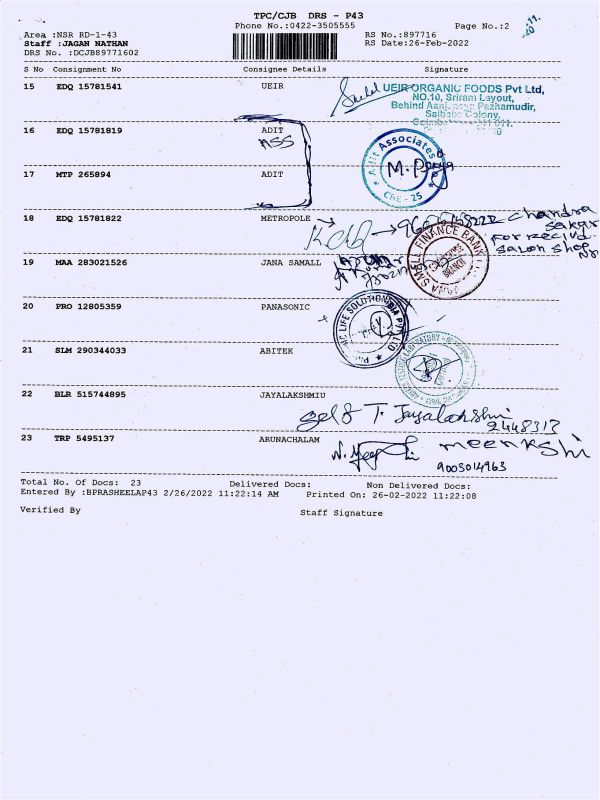 TPC/CJB DRS - P43
Phone No.:0422-3505555
Page No.:2
Area :NSR RD-1-43
RS No.:897716
Staff :JAGAN NATHAN
RS Date:26-Feb-2022
DRS No. :DCJB89771602
S No Consignment No Consignee Details Signature
15 EDQ 15781541 UEIR
UEIR ORGANIC FOODS Pvt Ltd,
NO.10, Sriram Layout,
Behind Pazhamudir,
Saibaba Colony,
16 EDQ 15781819 ADIT
ASS
Adit Associates
M. Priya
CBE - 25
17 MTP 265894 ADIT
18 EDQ 15781822 METROPOLE
Chandra
Sekar
For
Salon Shop
19 MAA 283021526 JANA SAMALL
JANA SMALL FINANCE BANK
BRANCH
20 PRO 12805359 PANASONIC
LIFE SOLUTIONS PVT LTD
21 SLM 290344033 ABITEK
LABORATORY
22 BLR 515744895 JAYALAKSHMIU
Self T. Jayalakshmi
2448313
23 TRP 5495137 ARUNACHALAM
meenkshi
9003014963
Total No. Of Docs: 23 Delivered Docs: Non Delivered Docs:
Entered By :BPRASHEELAP43 2/26/2022 11:22:14 AM Printed On: 26-02-2022 11:22:08
Verified By Staff Signature